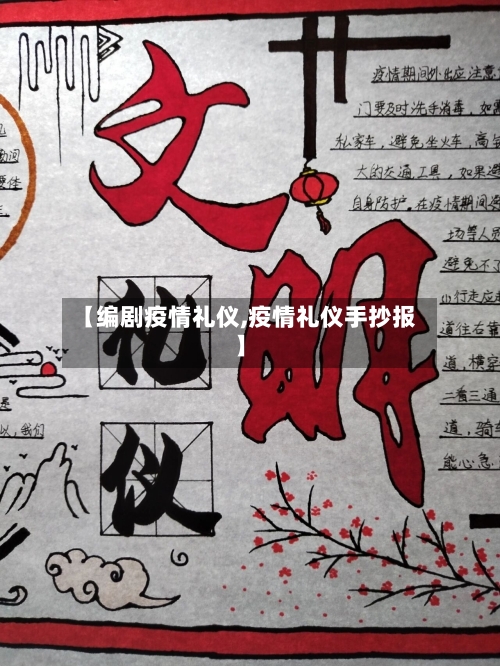 文明
礼仪
【编剧疫情礼仪,疫情礼仪手抄报
】
疫情期间外出应注意
门要及时洗手消毒，如
私家车，避免坐火车，高
大的交通工具，如果避
自身防护。在疫情期间
场等人员
避免不了
小行走应
道往右靠
道，横穿
二看三通
道，骑车
能心急
是
以，我们